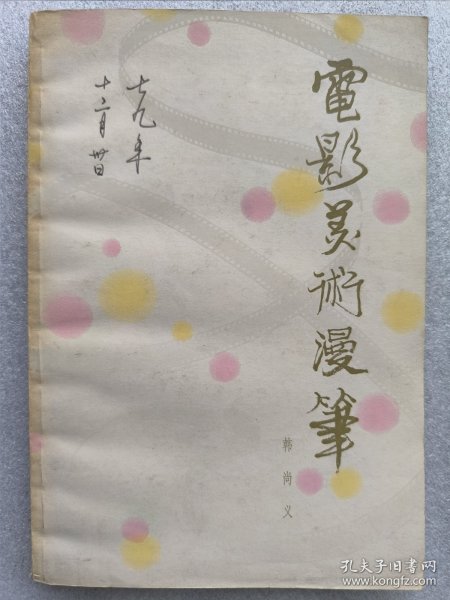 電影美術漫筆
韩尚义
七九年
十二月卅日
孔夫子旧书网
www.kongfz.com